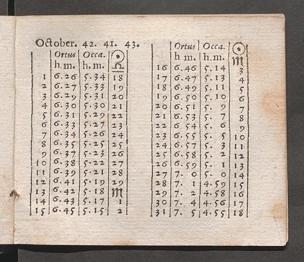 October. 42. 41. 43.
Ortus Occa. ☉
h. m. h. m. ♎
1 6.26 5.34 18
2 6.27 5.33 19
3 6.29 5.31 20
4 6.30 5.30 21
5 6.31 5.29 22
6 6.33 5.27 23
7 6.34 5.26 24
8 6.35 5.25 25
9 6.37 5.23 26
10 6.38 5.22 27
11 6.39 5.21 28
12 6.41 5.19 29
13 6.42 5.18 ♏
14 6.43 5.17 1
15 6.45 5.15 2
Ortus Occa. ☉
h. m. h. m. ♏
16 6.46 5.14 3
17 6.47 5.13 4
18 6.49 5.11 5
19 6.50 5.10 6
20 6.51 5.9 7
21 6.53 5.7 8
22 6.54 5.6 9
23 6.55 5.5 10
24 6.57 5.3 11
25 6.58 5.2 12
26 6.59 5.1 13
27 7.0 5.0 14
28 7.1 4.59 15
29 7.2 4.58 16
30 7.4 4.56 17
31 7.5 4.55 18